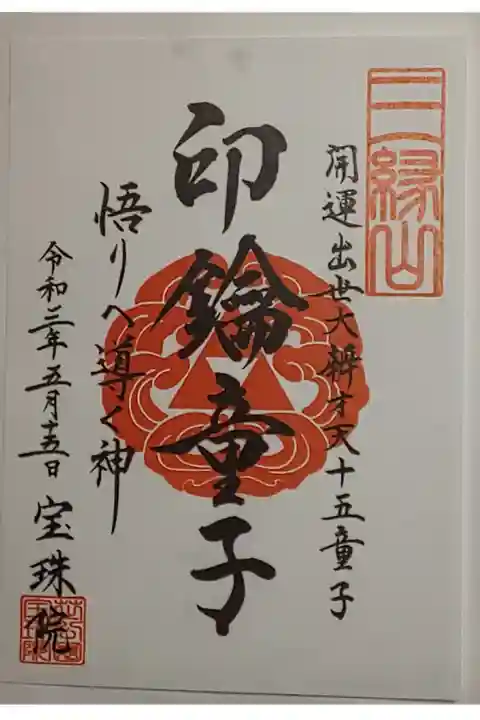 三縁山
開運出世大辨才天十五童子
印鑰童子
悟りへ導く神
令和三年五月十五日 宝珠院